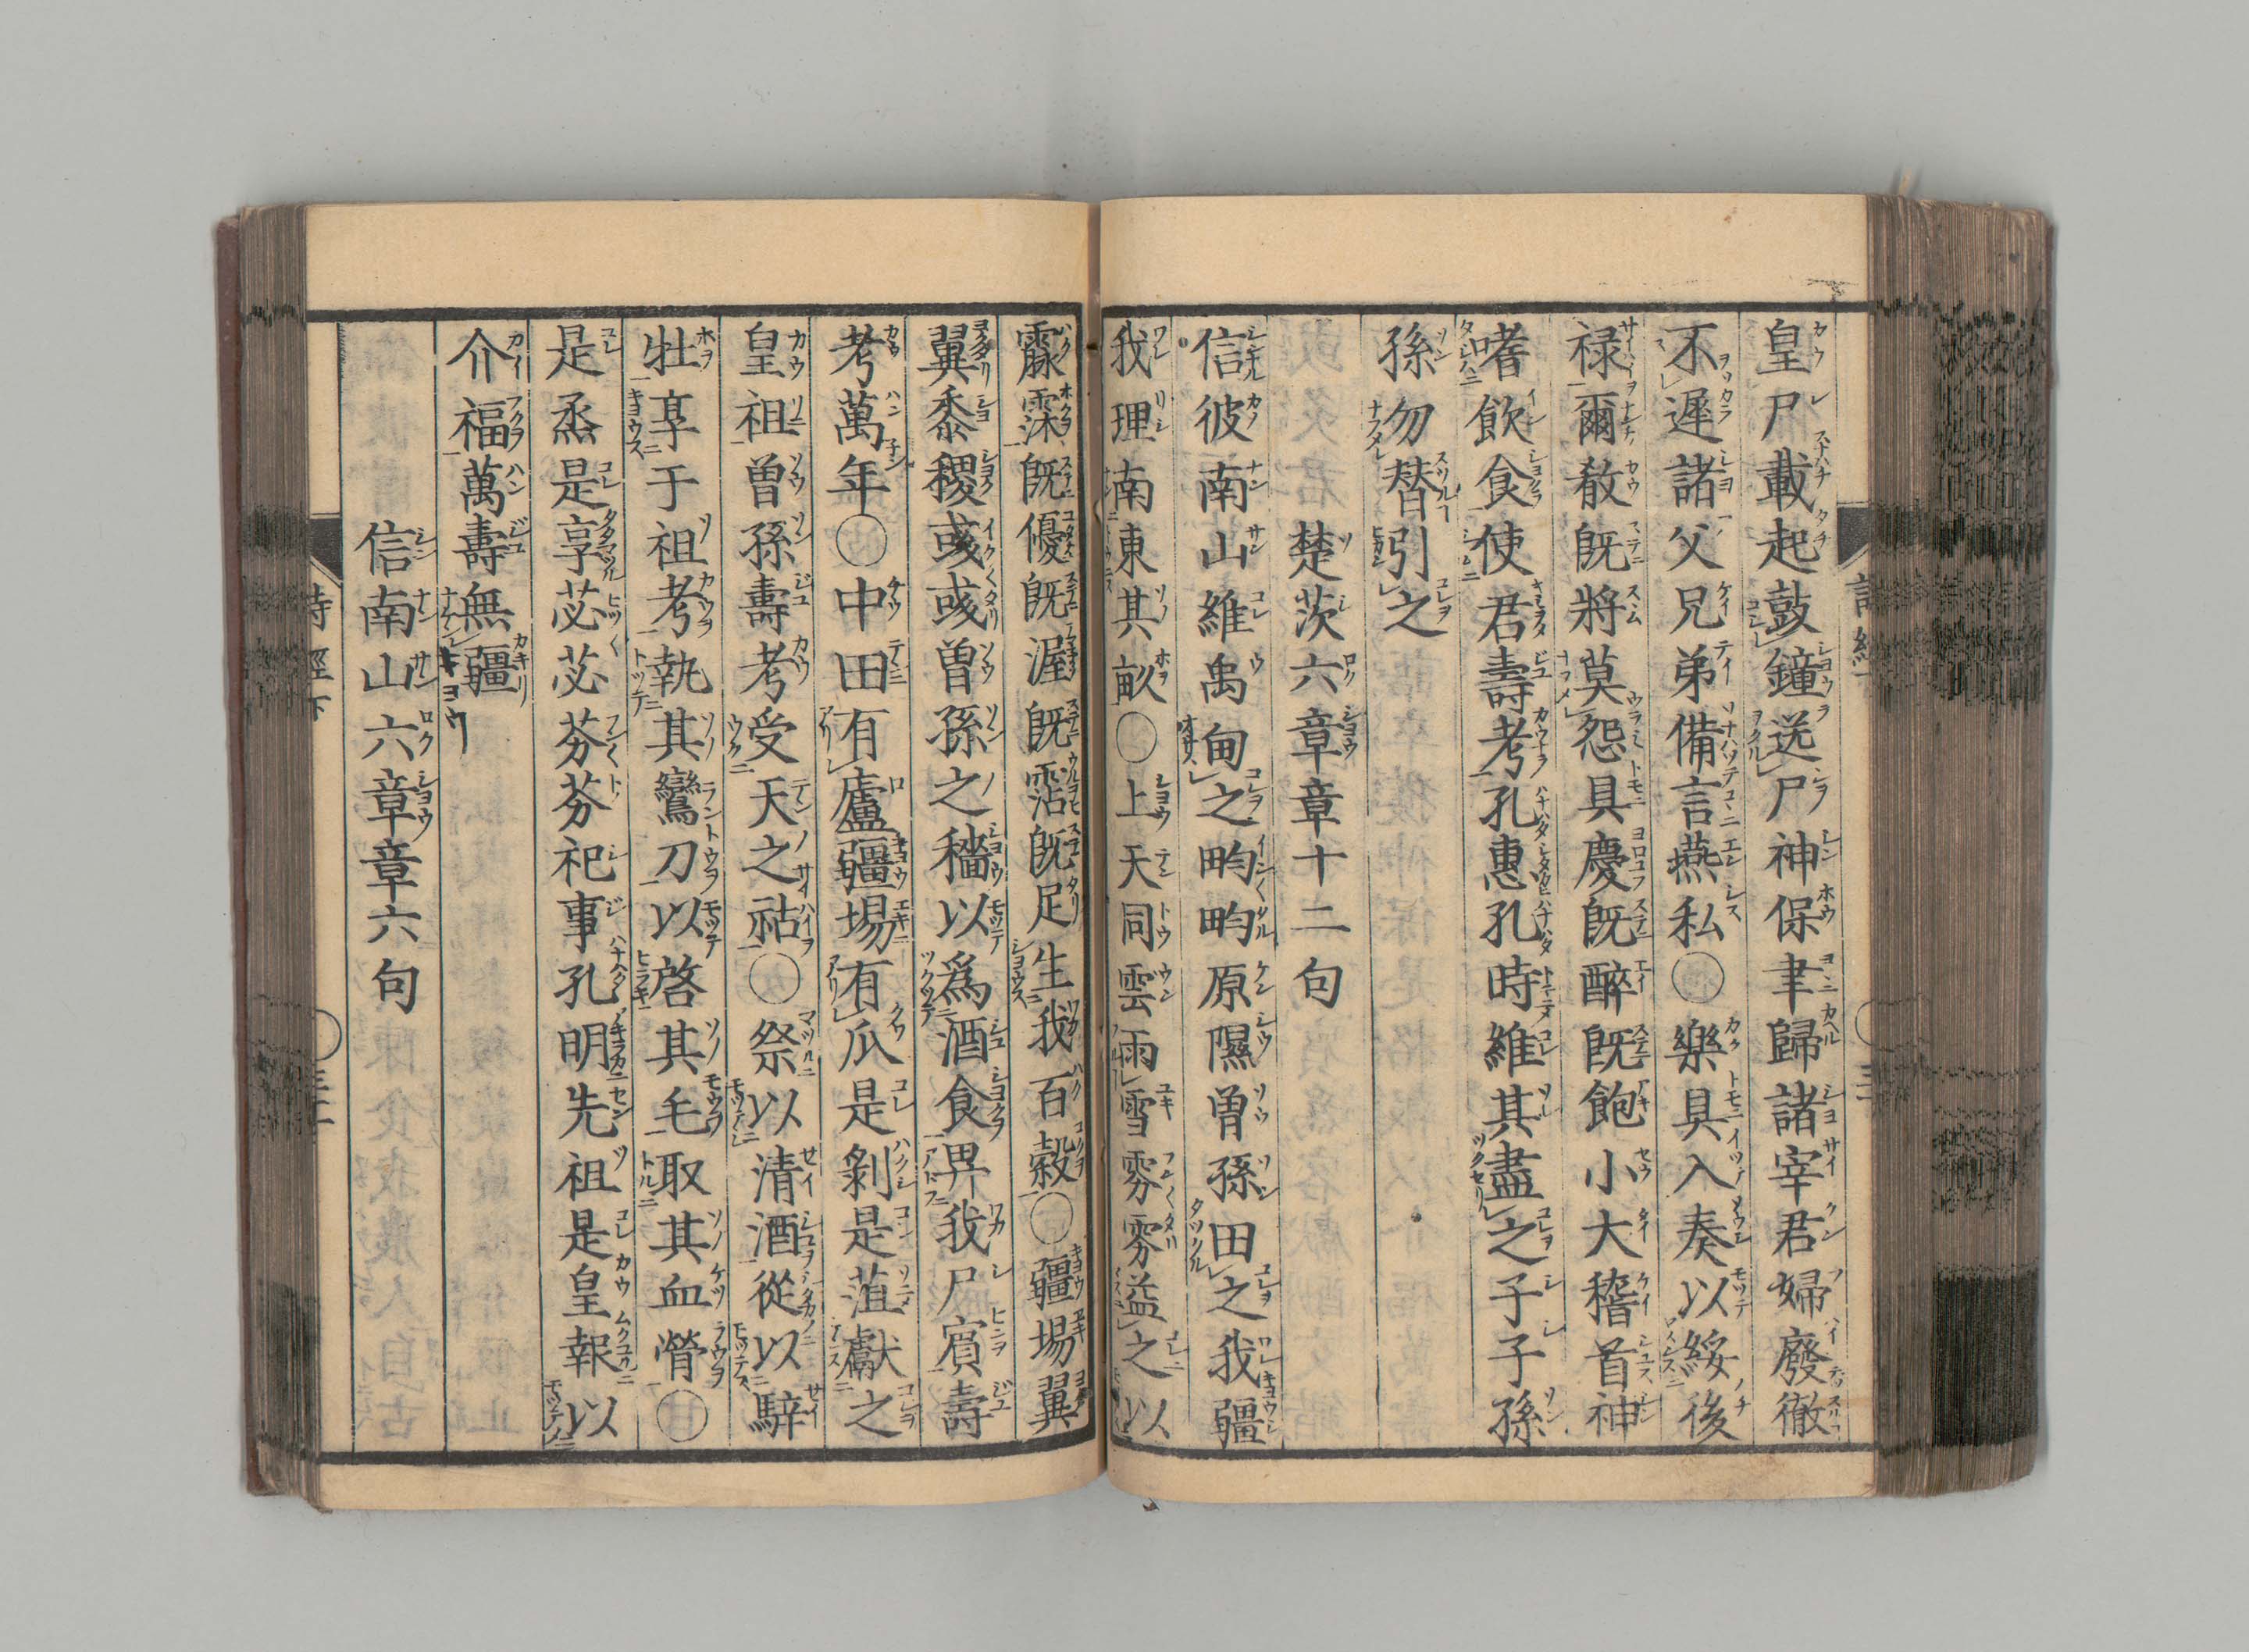 皇尸載起鼓鐘送尸神保聿歸諸宰君婦廢徹
不遲諸父兄弟備言燕私○樂具入奏以綏後
禄爾殽既將莫怨具慶既醉既飽小大稽首神
嗜飲食使君壽考孔惠孔時維其盡之子子孫
孫勿替引之
楚茨六章章十二句
信彼南山維禹甸之畇畇原隰曾孫田之我疆
我理南東其畝○上天同雲雨雪雰雰益之以
霢霂既優既渥既霑既足生我百穀○疆場翼
翼黍稷彧彧曾孫之穡以爲酒食畀我尸賓壽
考萬年○中田有廬疆場有瓜是剝是菹獻之
皇祖曾孫壽考受天之祜○祭以清酒從以騂
牡享于祖考執其鸞刀以啓其毛取其血膋○
是烝是享苾苾芬芬祀事孔明先祖是皇報以
介福萬壽無疆
信南山六章章六句